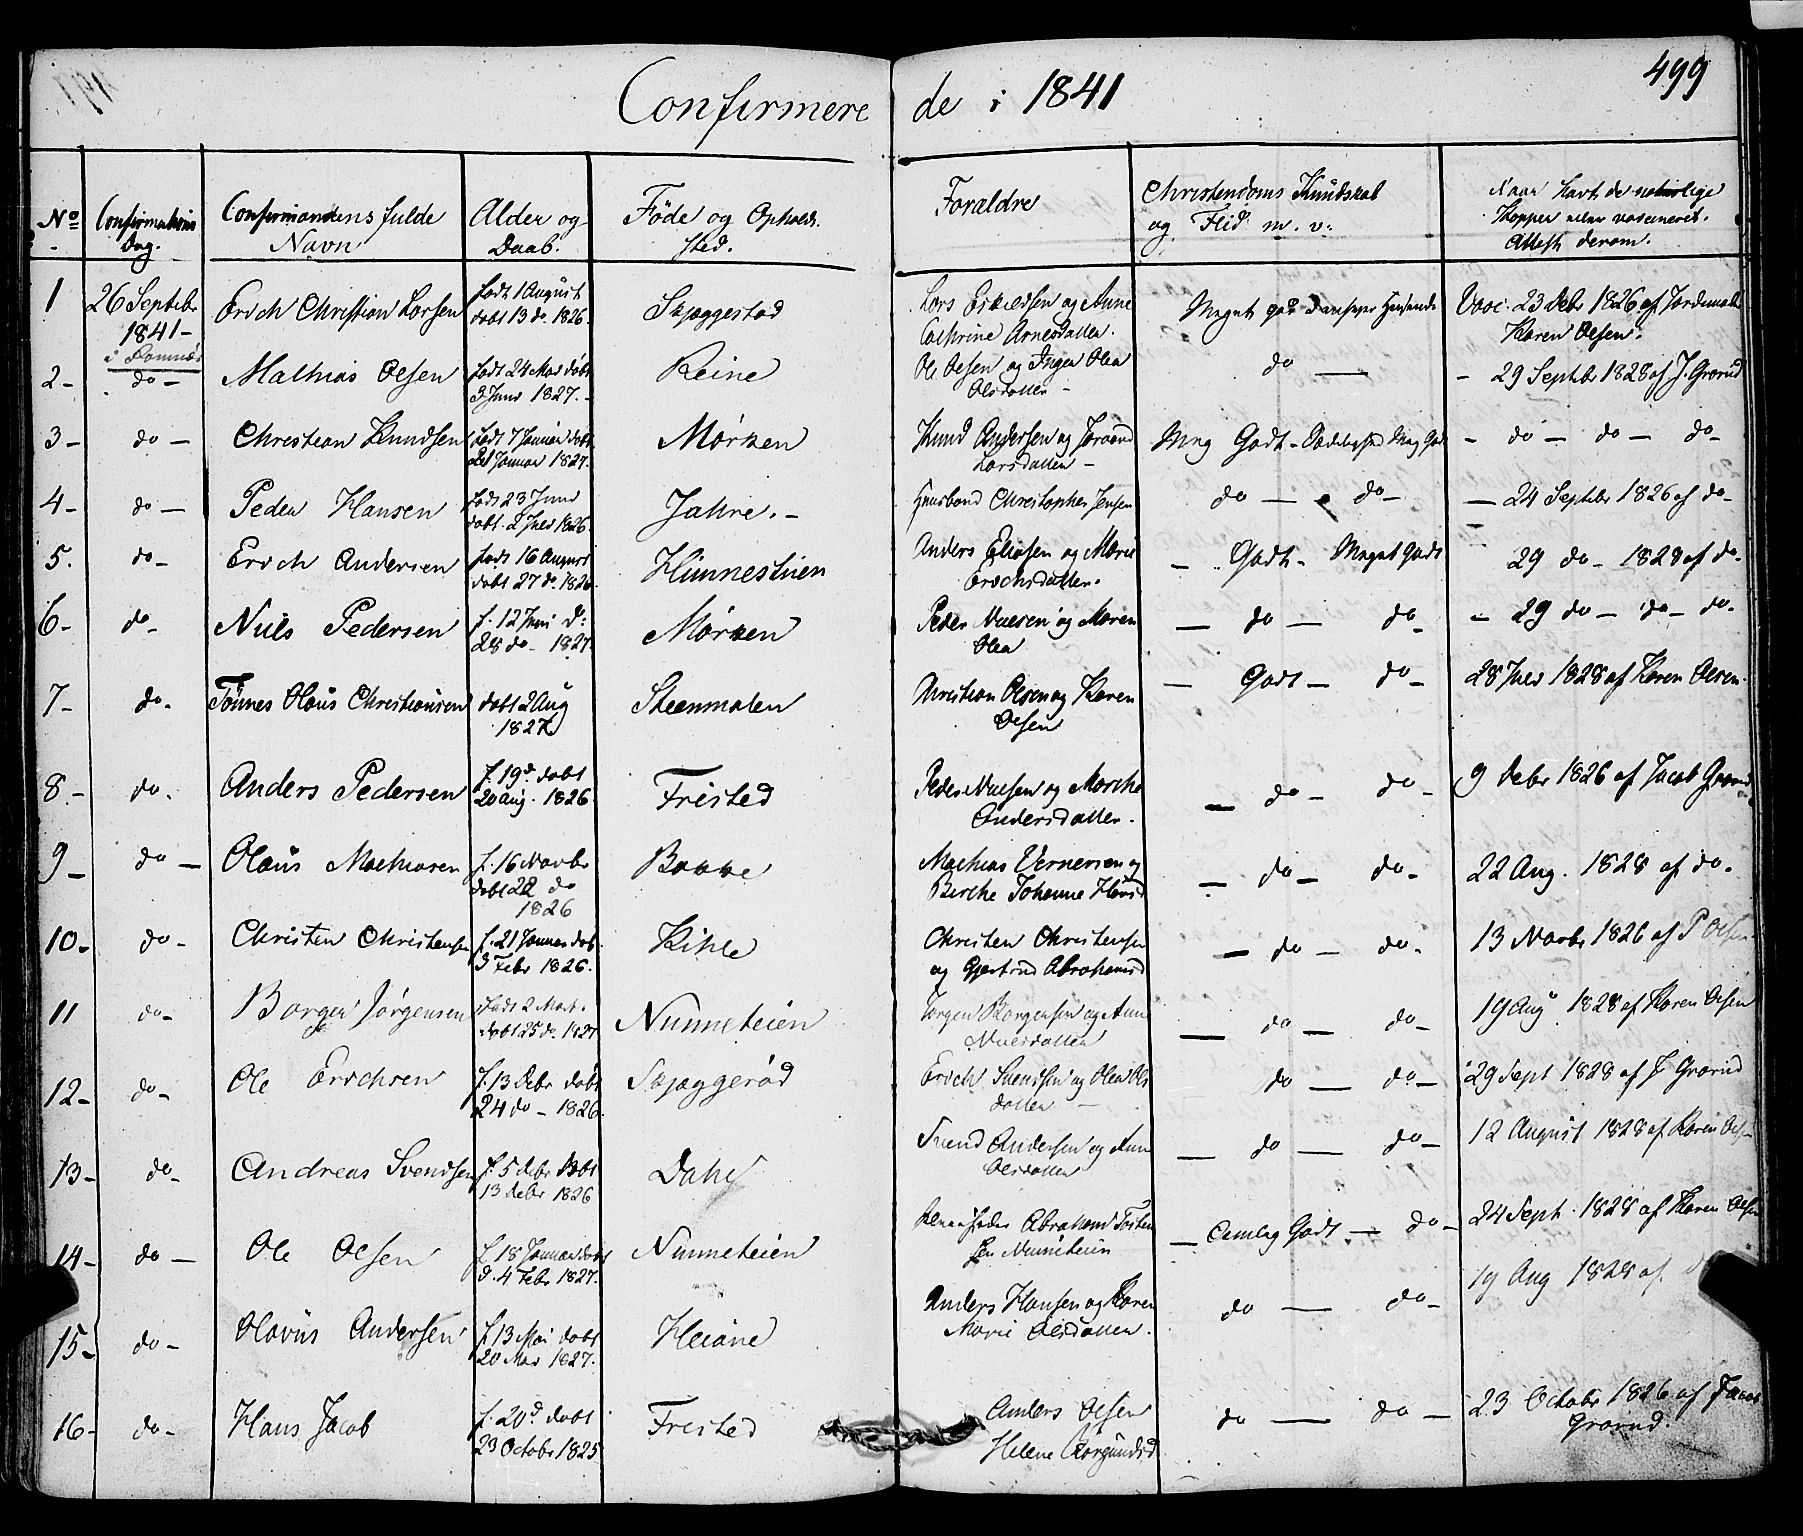 Confirmerede i 1841
499
No Confirmations Dag. Confirmandens fulde Navn Alder og Daab. Föde og Opholds sted. Foraldre Christendoms Kundskab og Flid m. v: Naar havt de naturlige Kopper eller vaccineret. Attest derom.
1 26 Septebr 1841 - Erich Christian Larsen født 1 August døbt 13 do. 1826. Skjaggestad Lars Eskildsen og Anne Cathrine Arnesdatter. Meget godt Vacc. 23 Debr 1826 af Jordemoder Karen Olsen.
2 - do - Mathias Olsen født 24 Mai døbt 3 Juni 1827. - Reine Ole Olsen og Inger Olea Olsdatter - do — - 29 Septebr 1828 af J. Grorud
3 - do - Christian Knudsen født 7 Januar døbt 21 Januar 1827. Mørken Knud Andersen og Larsdatter - Meg Godt - Meg Godt - do - do - do -
4 - do - Peder Hansen født 23 Juni døbt 2 Juli 1826. Jahre. - Huusbond Christopher Jensen do — do - - 24 Septebr 1826 af do -
5. do - Erich Andersen født 16 August døbt 27 do. 1826 Himnestuen Anders Eliasen og Marie Erichsdatter. - Godt - Meget Godt 29 do - 1828 af do -
6 - do - Nils Pedersen f. 12 Juni d: 28 do - 1827. Mørken Peder Nielsen og Maren Olea — do — do - - 29 do - do - do -
7 - do - Tönnes Olaus Christiansen døbt 2 Aug 1827 Steenmalen Christian Olsen og Karen Olsen — Godt - do - 28 Juli 1828 af Karen Olsen
8. - do - Anders Pedersen f. 19d døbt 20 Aug. 1826 Fristed Peder Nielsen og Marthe Andersdatter. — do - do - 9 Debr 1826 af Jacob Grorud
9 - do - Olaus Mathiasen f. 16 Novbr døbt 22 do 1826 Bakke Mathias Vernersen og Berthe Johanne Hansd — do - do - 22 Aug. 1828 af do -
10 - do - Christen Christensen f. 21 Januar døb. 3 Febr 1826. Kihle Christen Christensen og Gjertrud Abrahamsd — do - do - 13 Novbr 1826 af P Olsen
11 do - Borger Jørgensen født 2 Mart. døbt 25 do. 1827 Nunneteien Jørgen Borgersen og Ann Nielsdatter — do - do - 19 Aug 1828 af Karen Olsen
12 - do - Ole Erichsen f. 13 Debr døbt 24 do - 1826. Skjaggerød Erich Svendsen og Olea Olsdatter - do — do - 29 Sept 1828 af J Grorud
13 - do - Andreas Svendsen f. 5 Debr døbt 13 Debr 1826 Dahl Svend Andersen og Ann Olsdatter — do — do - 12 August 1828 af Karen Ols
14 - do — Ole Olsen f. 18 Januar døbt d. 4 Febr 1827. Nunneteien Abraham Tosten sen Nunneteien — Temlig Godt — do - 24 Sept. 1828 af Karen Olsen
15 - do - Olavus Andersen f. 13 Mai døbt 20 Mai 1827. Heiane Anders Hansen og Karen Marie Olsdatter. do — do - 19 Aug 1828 af
16 - do - Hans Jacob f. 20d døbt 23 Octobr 1825 Fristed Anders Olsen Helene Borgundsd. do — do - 23 Octobr 1826 af Jacob Grorud.